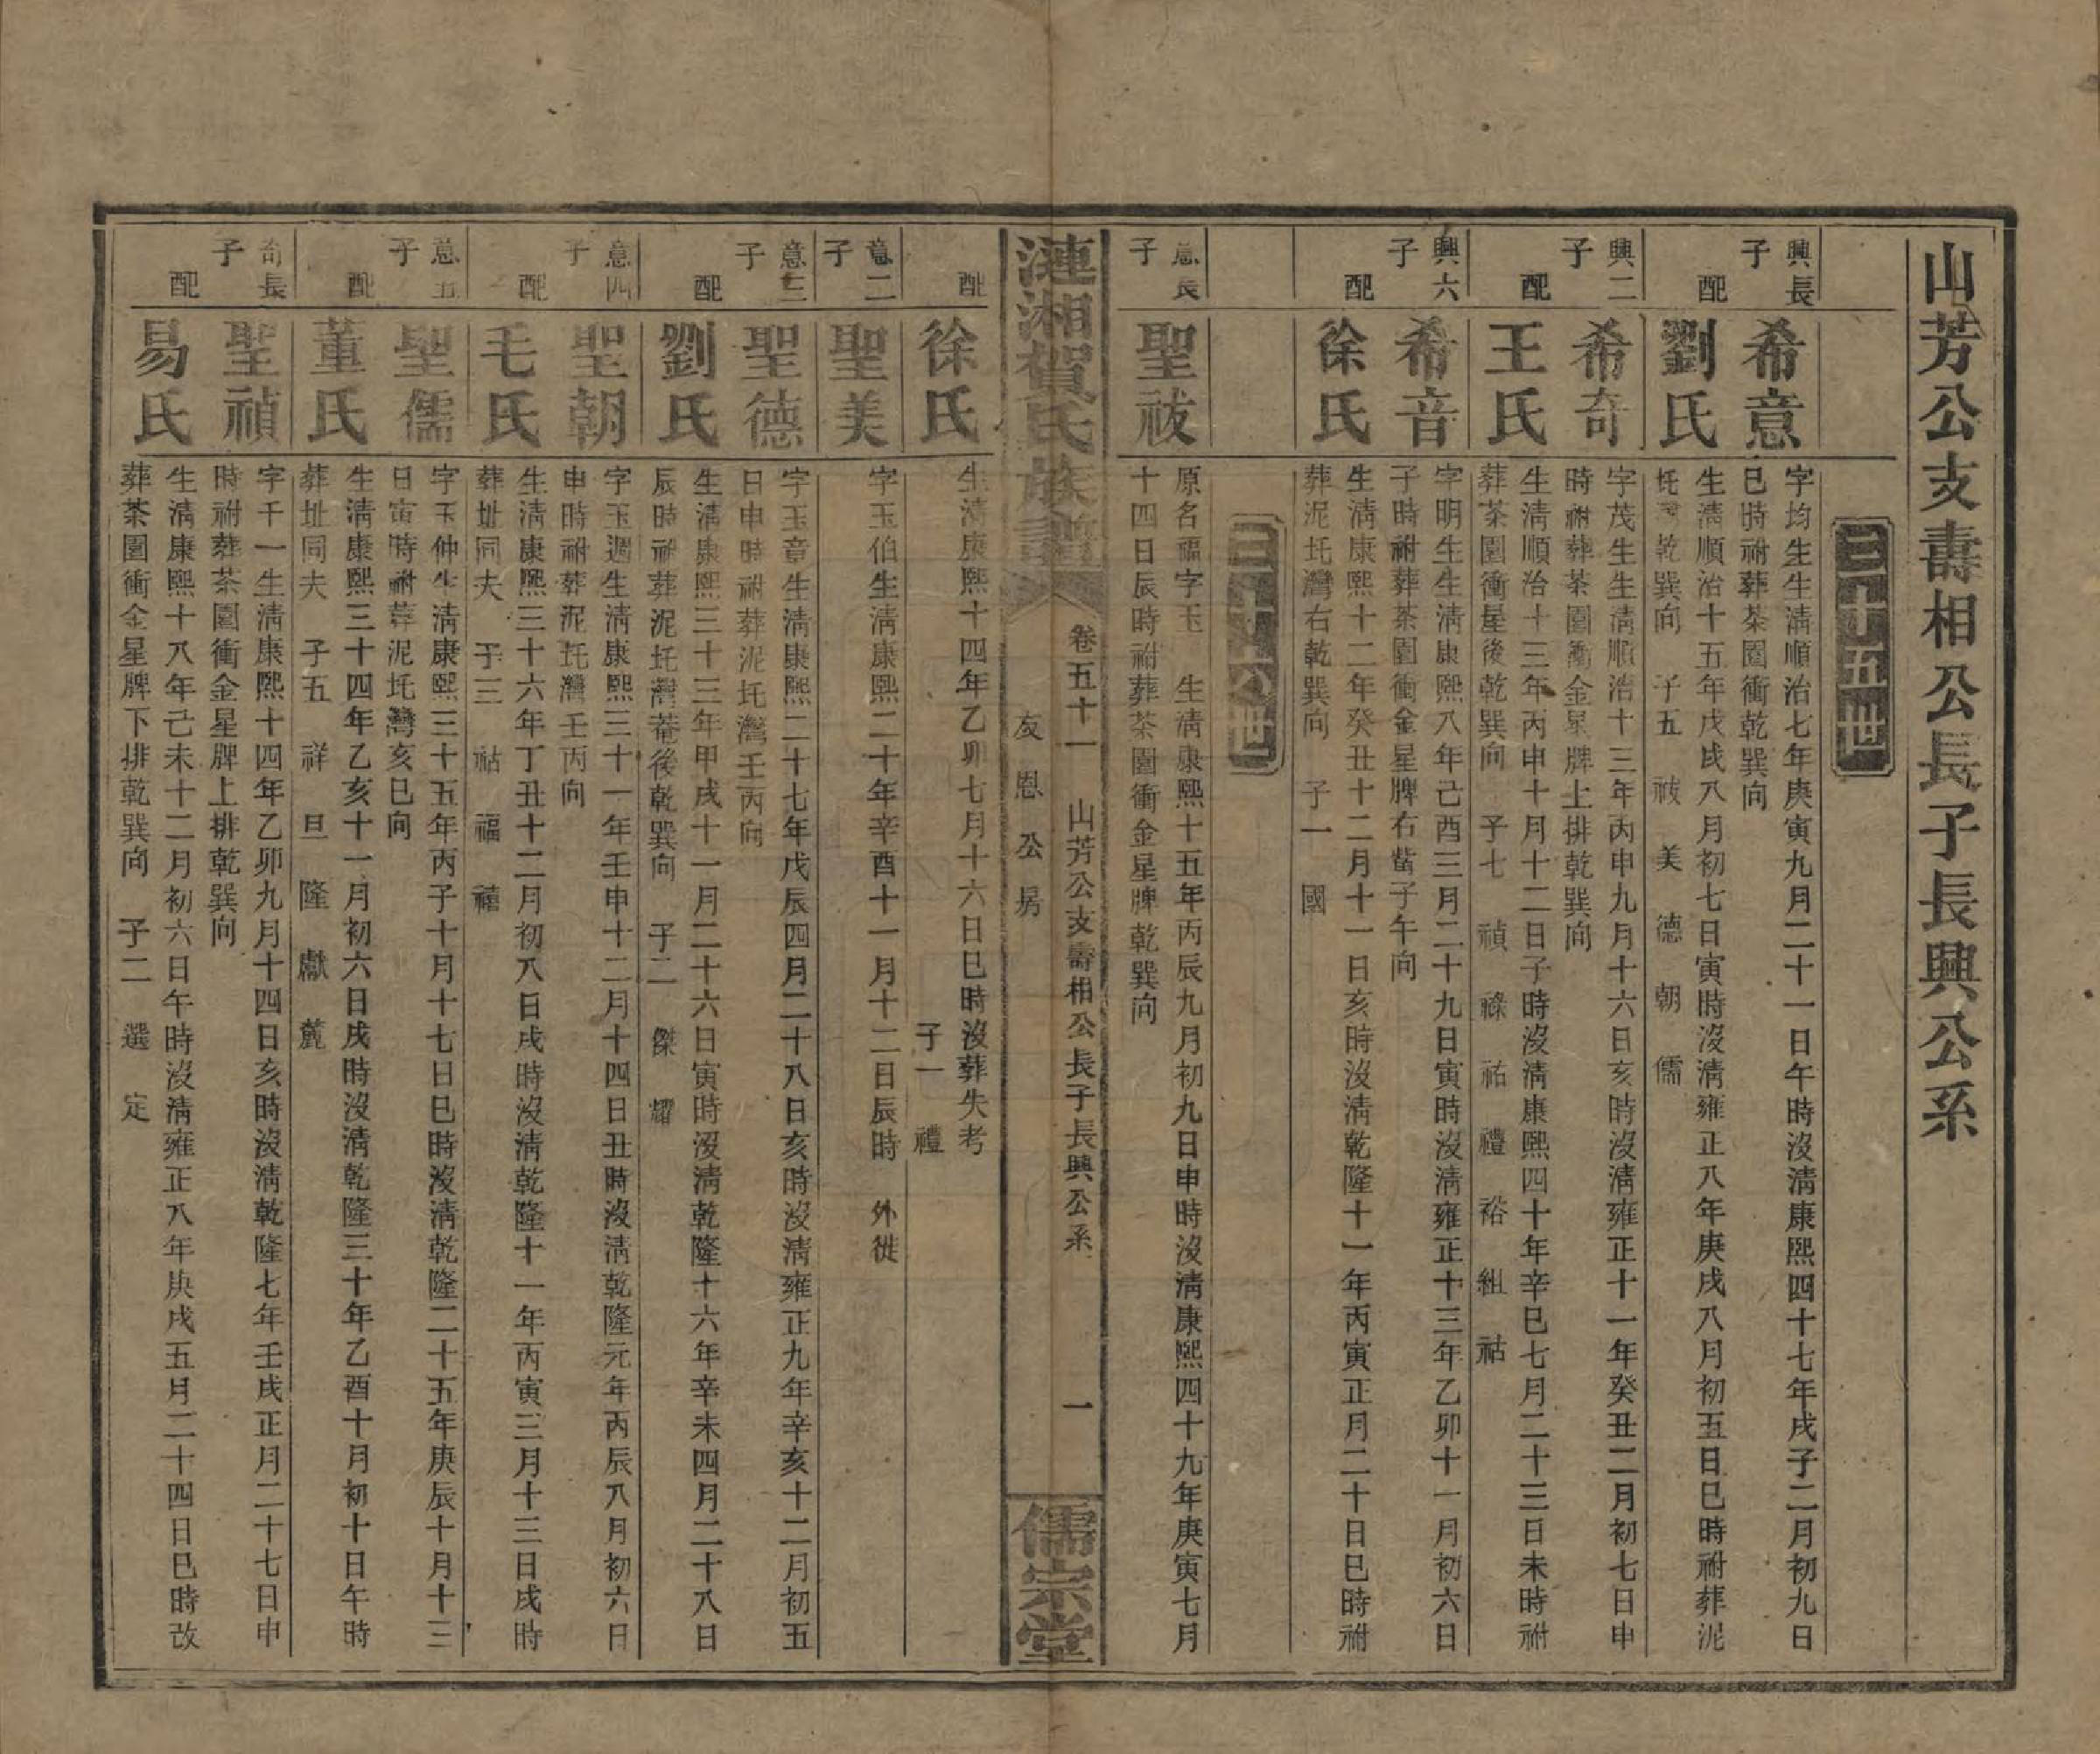 山芳公支壽相公長子長興公系
二十五世
興長子
希意
字均生生淸順治七年庚寅九月二十一日午時沒淸康熙四十七年戌子二月初九日
巳時祔葬茶園衝乾巽向
配
劉氏
生淸順治十五年戊戌八月初七日寅時沒淸雍正八年庚戌八月初五日巳時祔葬泥
圫 乾巽向 子五 祓 美 德 朝 儒
興二子
希奇
字茂生生淸順治十三年丙申九月十六日亥時沒淸雍正十一年癸丑二月初七日申
時祔葬茶園衝金星牌上排乾巽向
配
王氏
生淸順治十三年丙申十月十二日子時沒淸康熙四十年辛巳七月二十三日未時祔
葬茶園衝星後乾巽向 子七 禎 祿 祐 禮 裕 組 祜
興六子
希音
字明生生淸康熙八年己酉三月二十九日寅時沒淸雍正十三年乙卯十一月初六日
子時祔葬茶園衝金星牌右觜子午向
配
徐氏
生淸康熙十二年癸丑十二月十一日亥時沒淸乾隆十一年丙寅正月二十日巳時祔
葬泥圫灣右乾巽向 子一 國
二十六世
意長子
聖祓
原名福字玉 生淸康熙十五年丙辰九月初九日申時沒淸康熙四十九年庚寅七月
十四日辰時祔葬茶園衝金星牌乾巽向
漣湘賀氏族譜
卷五十一 山芳公支壽相公長子長興公系 一
友恩公房
儒宗堂
配
徐氏
生淸康熙十四年乙卯七月十六日巳時沒葬失考
子一 禮
意二子
聖美
字玉伯生淸康熙二十年辛酉十一月十二日辰時 外徙
意三子
聖德
字玉章生淸康熙二十七年戊辰四月二十八日亥時沒淸雍正九年辛亥十二月初五
日申時祔葬泥圫灣壬丙向
配
劉氏
生淸康熙三十三年甲戌十一月二十六日寅時沒淸乾隆十六年辛未四月二十八日
辰時祔葬泥圫灣菴後乾巽向 子二 傑 耀
意四子
聖朝
字玉週生淸康熙三十一年壬申十二月十四日丑時沒淸乾隆元年丙辰八月初六日
申時祔葬泥圫灣壬丙向
配
毛氏
生淸康熙三十六年丁丑十二月初八日戌時沒淸乾隆十一年丙寅三月十三日戌時
葬址同夫 子三 祜 福 禧
意五子
聖儒
字玉仲生淸康熙三十五年丙子十月十七日巳時沒淸乾隆二十五年庚辰十月十三
日寅時祔葬泥圫灣亥巳向
配
董氏
生淸康熙三十四年乙亥十一月初六日戌時沒淸乾隆三十年乙酉十月初十日午時
葬址同夫 子五 祥 旦 隆 獻 麓
奇長子
聖禎
字千一生淸康熙十四年乙卯九月十四日亥時沒淸乾隆七年壬戌正月二十七日申
時祔葬茶園衝金星牌上排乾巽向
配
易氏
生淸康熙十八年己未十二月初六日午時沒淸雍正八年庚戌五月二十四日巳時改
葬茶園衝金星牌下排乾巽向 子二 選 定